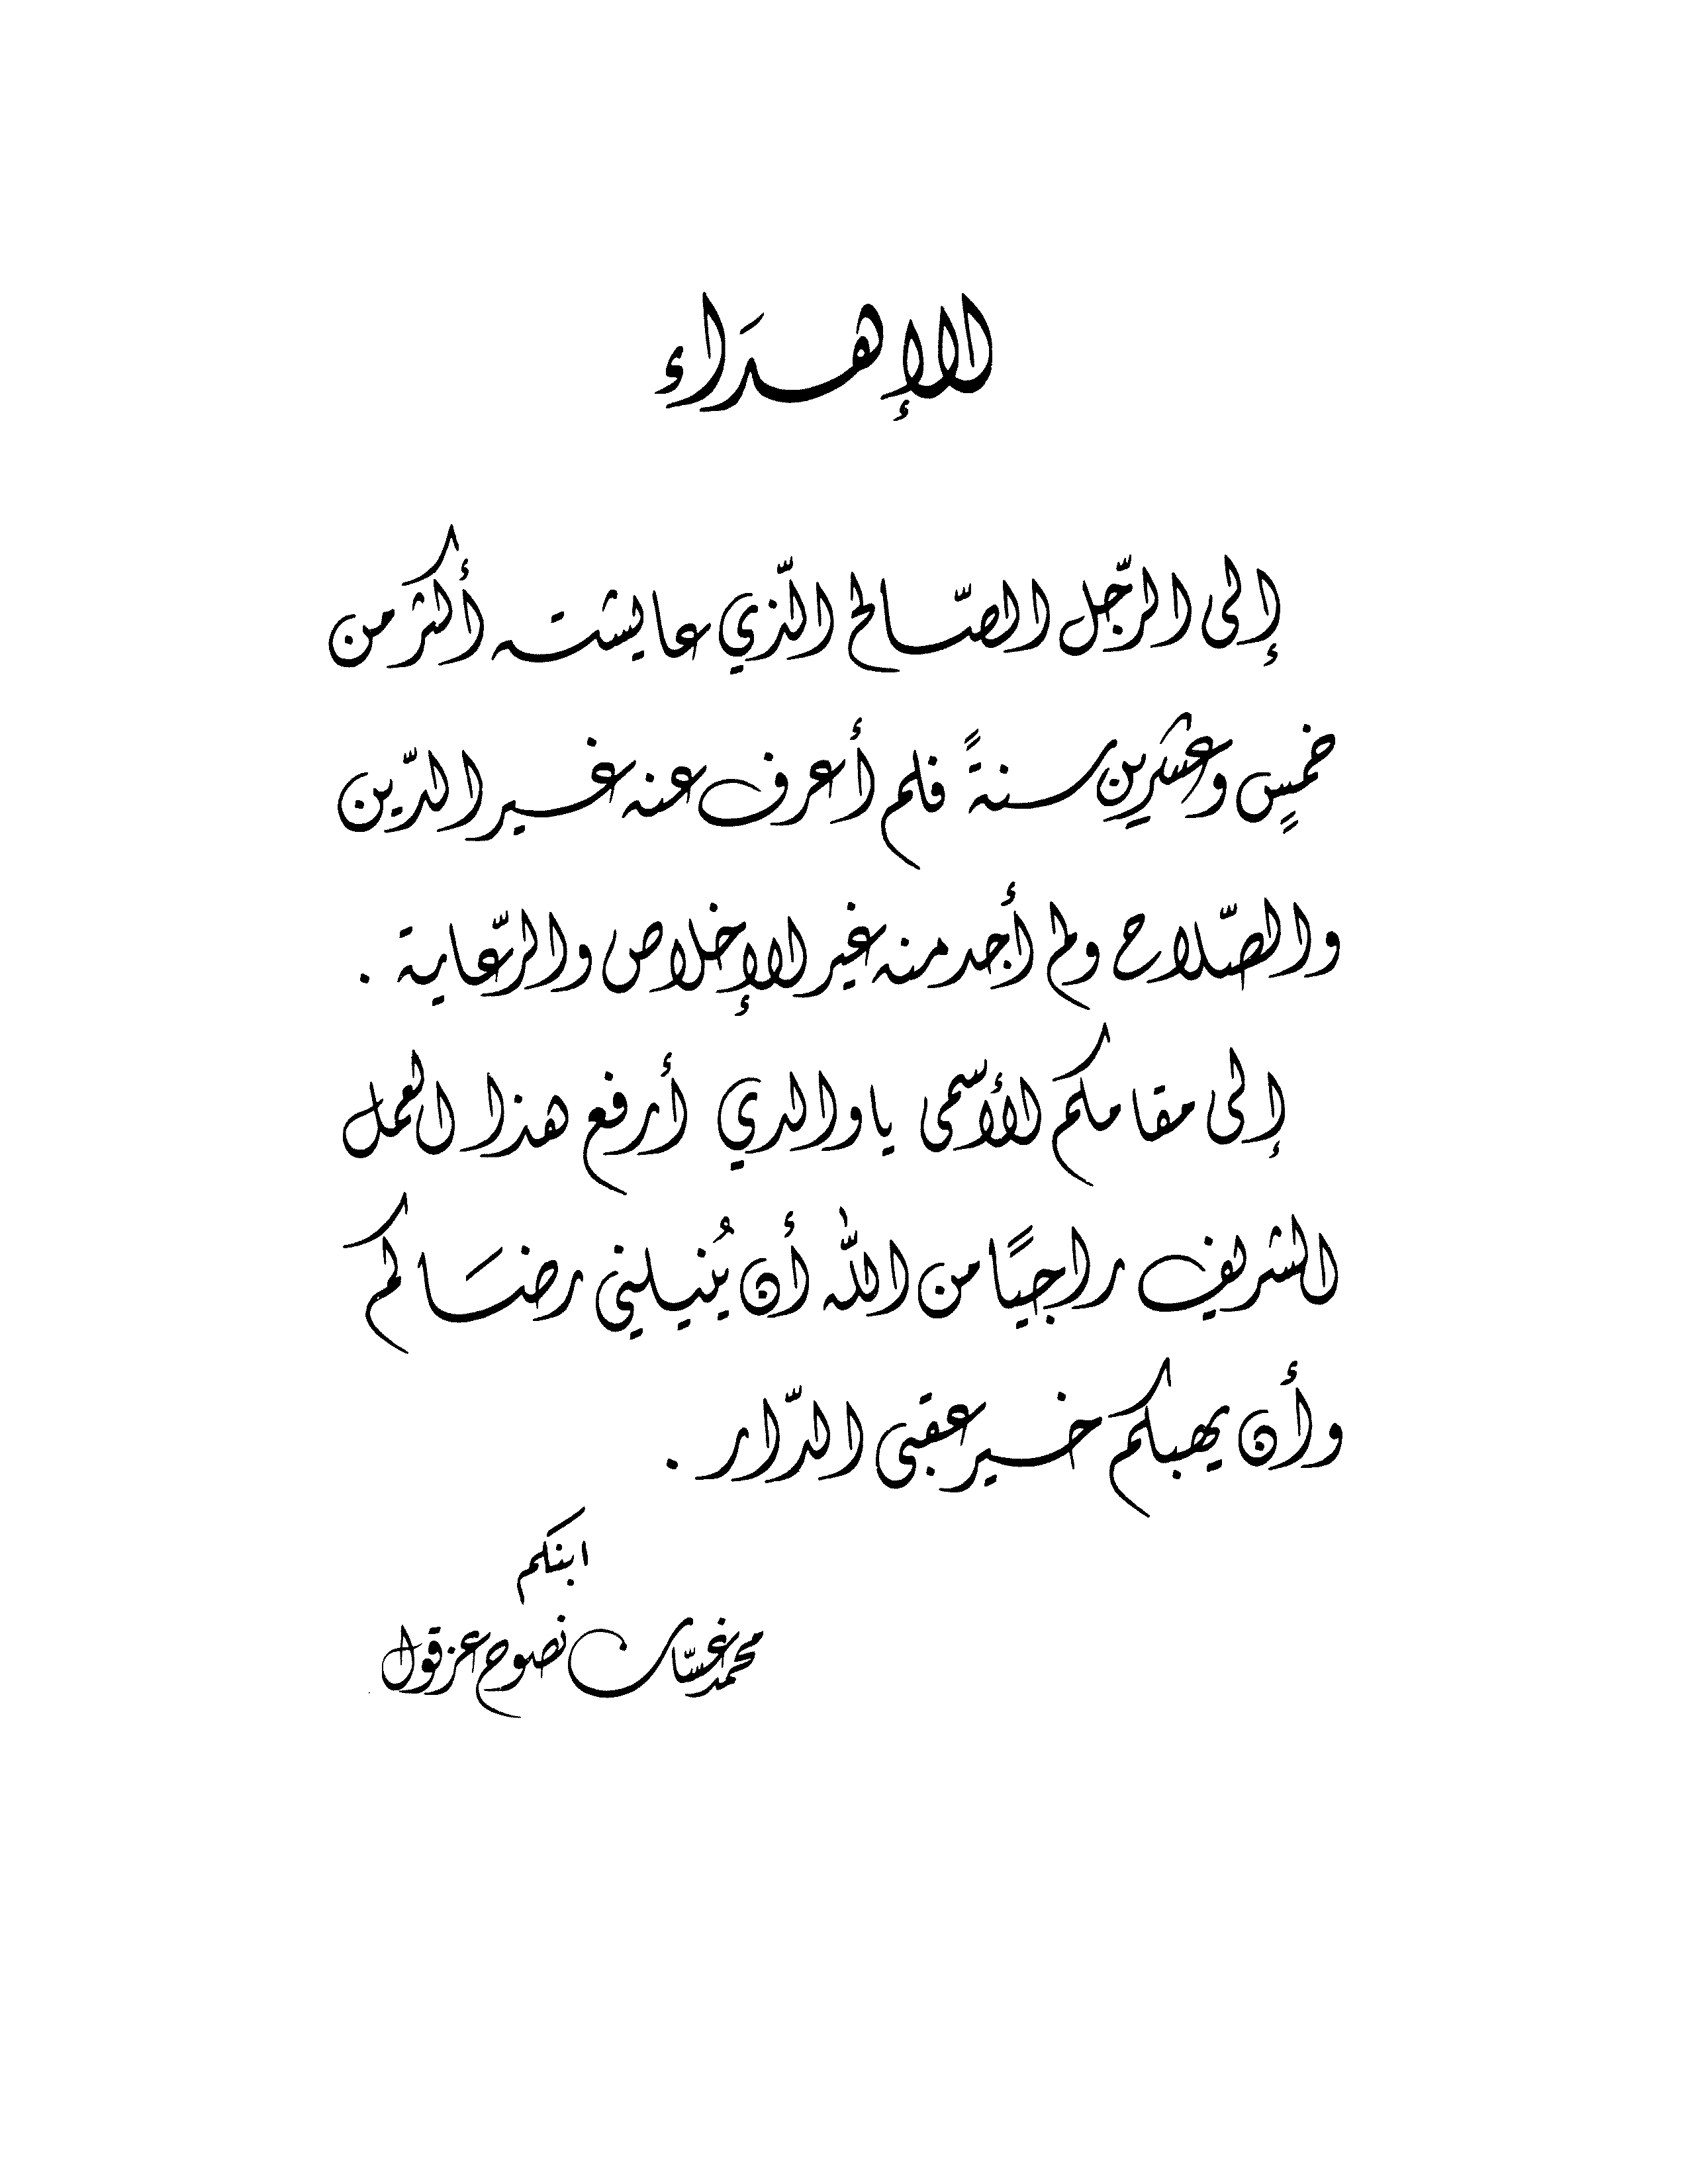 الإهدَاء
إلى الرّجل الصّالح الّذي عايشته أكثر من
خمسٍ وعشرين سنةً فلم أعرف عنه غير الدّين
والصّلاح ولم أجد منه غير الإخلاص والرّعاية .
إلى مقامكم الأسمى يا والدي أرفع هذا العمل
الشريف راجيًا من اللّه أن يُنيلني رضَاكم
وأن يهبكم خير عقبى الدّار .
ابنكم
محمد غسّان نصوح عزقول